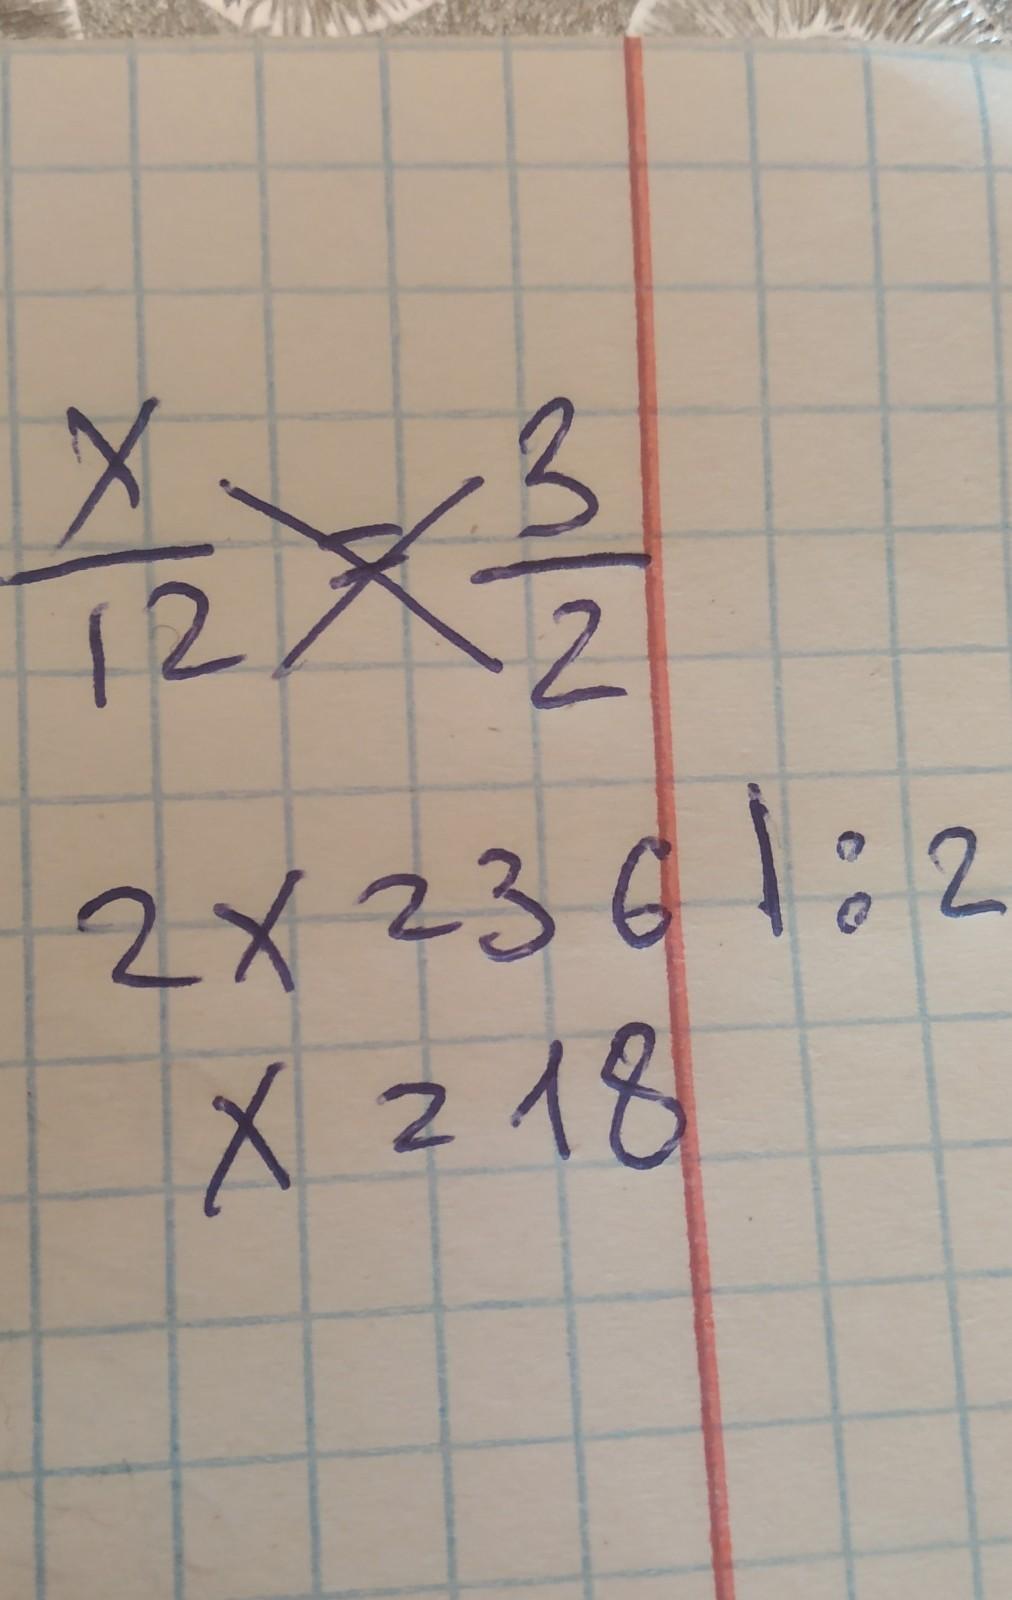 x/12 = 3/2
2x = 36 |:2
x = 18